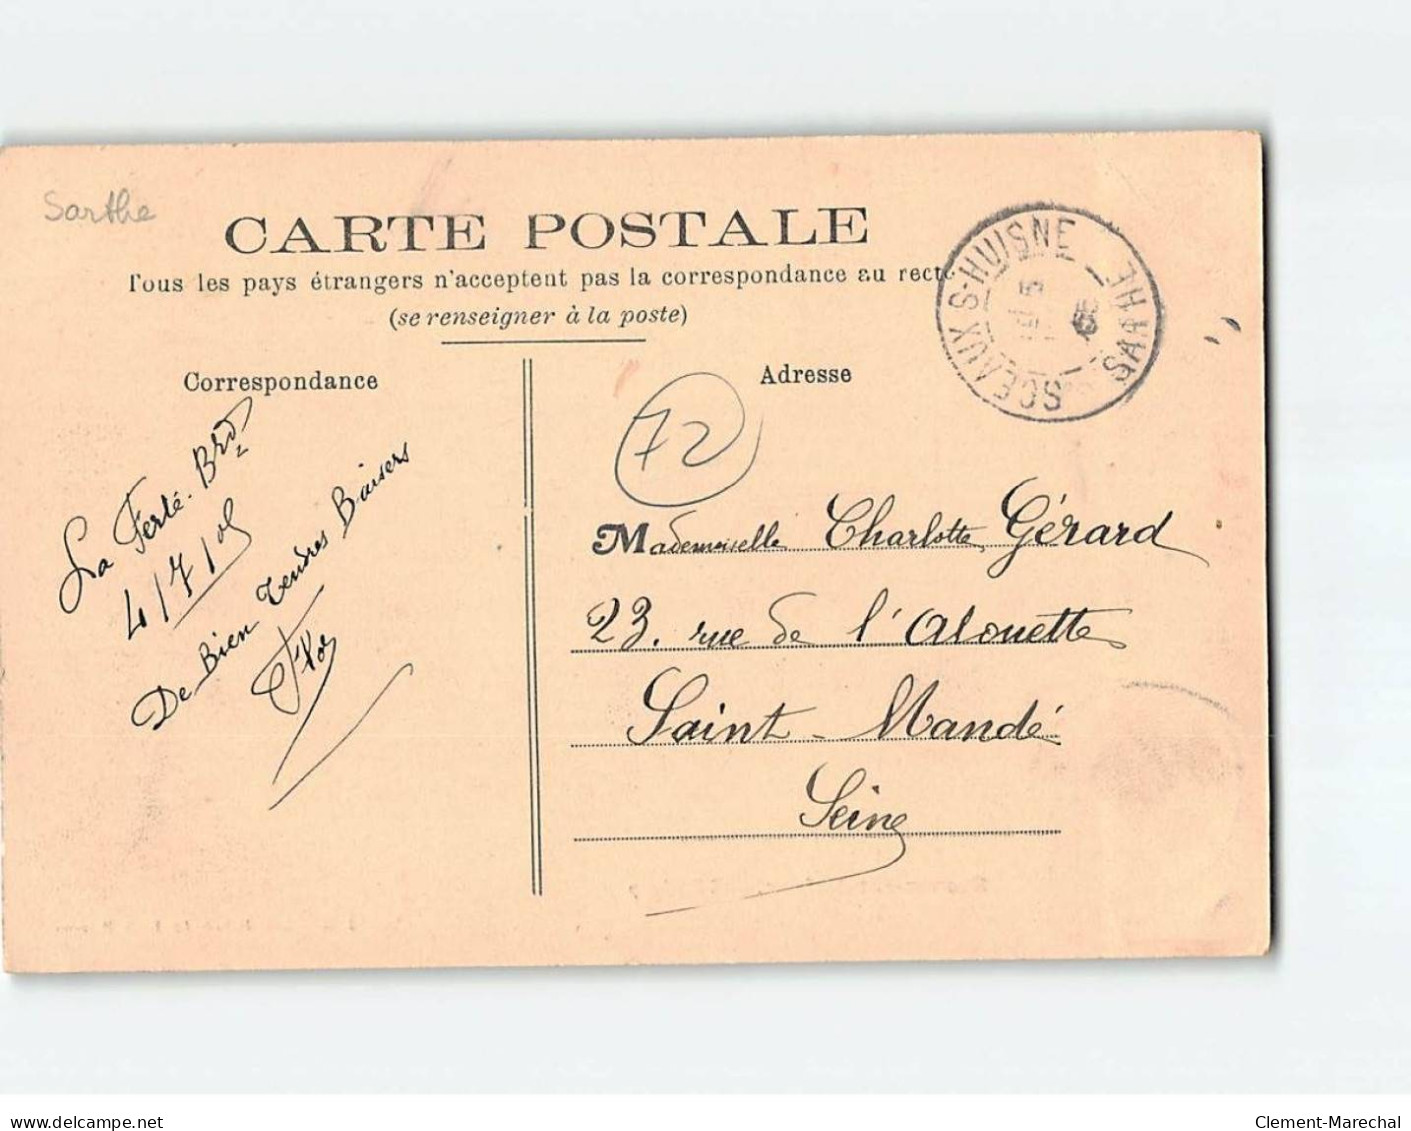 Sarthe
CARTE POSTALE
Tous les pays étrangers n'acceptent pas la correspondance au recto
(se renseigner à la poste)
SCEAUX S-HUISNE
SARTHE
Correspondance
Adresse
La Ferté-Brd
4/7/05
De Bien tendres Baisers
72
Mademoiselle Charlotte Gérard
23. rue de l'Alouette
Saint-Mandé
Seine
www.delcampe.net
Clement-Marechal